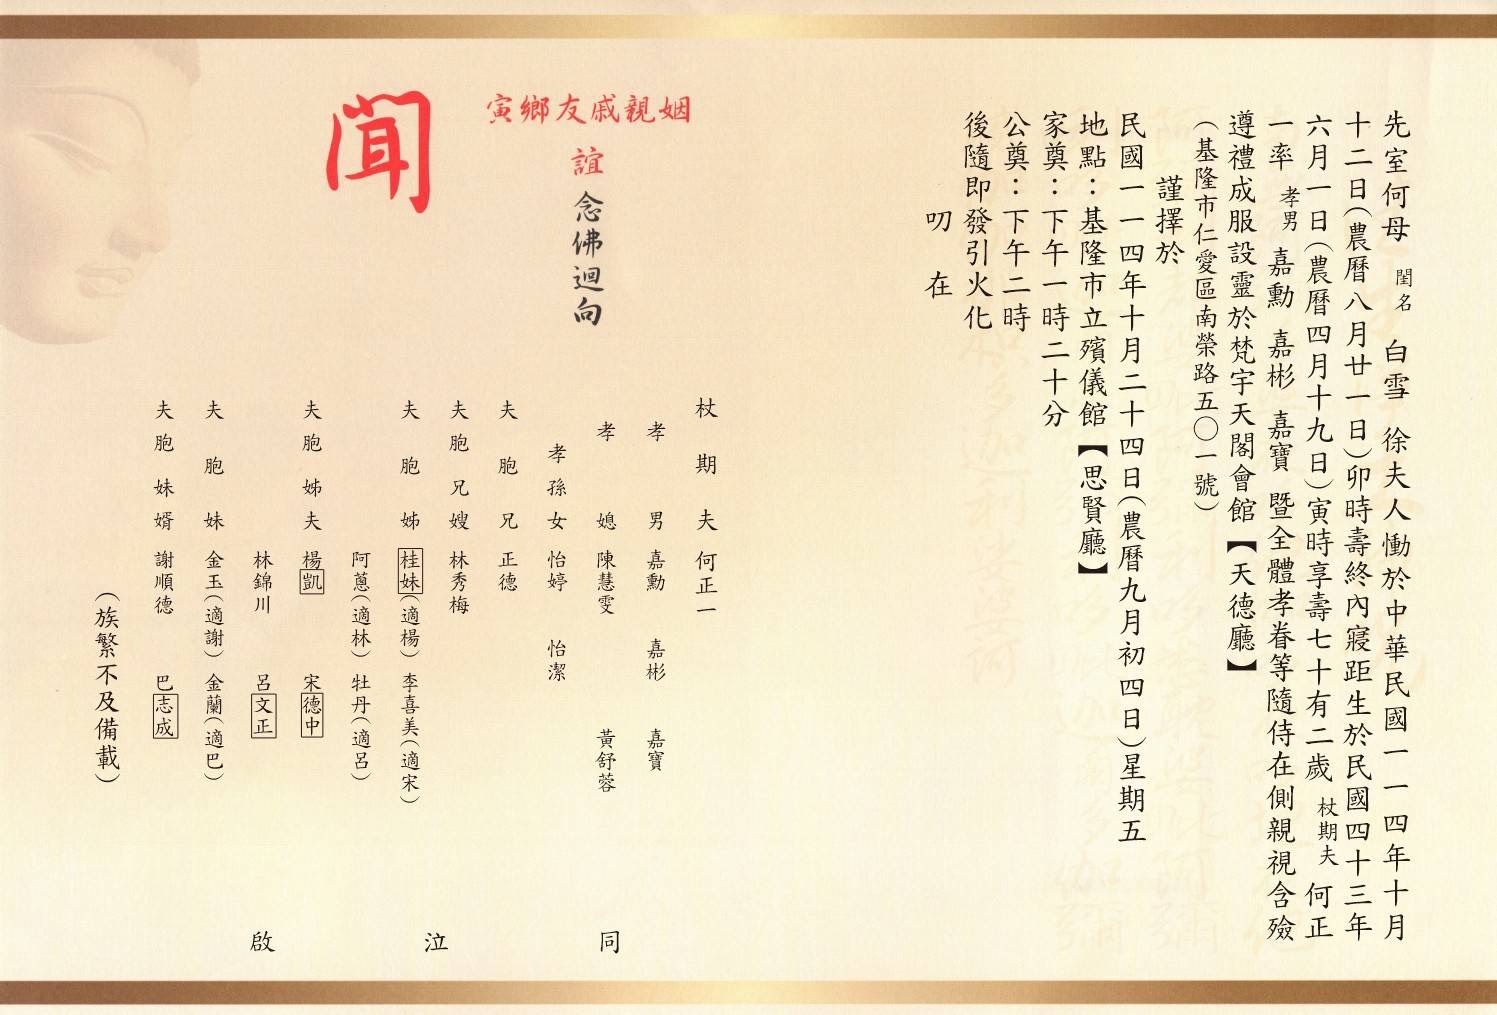 先室何母 閨名 白雪 徐夫人慟於中華民國一一四年十月
十二日(農曆八月廿一日)卯時壽終內寢距生於民國四十三年
六月一日(農曆四月十九日)寅時享壽七十有二歲 杖期夫 何正
一率 孝男 嘉勳 嘉彬 嘉寶 暨全體孝眷等隨侍在側親視含殮
遵禮成服設靈於梵宇天閣會館【天德廳】
(基隆市仁愛區南榮路五〇一號)
謹擇於
民國一一四年十月二十四日(農曆九月初四日)星期五
地點：基隆市立殯儀館【思賢廳】
家奠：下午一時二十分
公奠：下午二時
後隨即發引火化
叨在
姻親戚友鄉寅
誼 念佛迴向
聞
杖期夫 何正一
孝男 嘉勳 嘉彬 嘉寶
孝媳 陳慧雯 黃舒蓉
孝孫女 怡婷 怡潔
夫胞兄 正德
夫胞兄嫂 林秀梅
夫胞姊 桂妹(適楊) 李喜美(適宋)
阿蔥(適林) 牡丹(適呂)
夫胞姊夫 楊凱 宋德中
林錦川 呂文正
夫胞妹 金玉(適謝) 金蘭(適巴)
夫胞妹婿 謝順德 巴志成
(族繁不及備載)
同泣啟